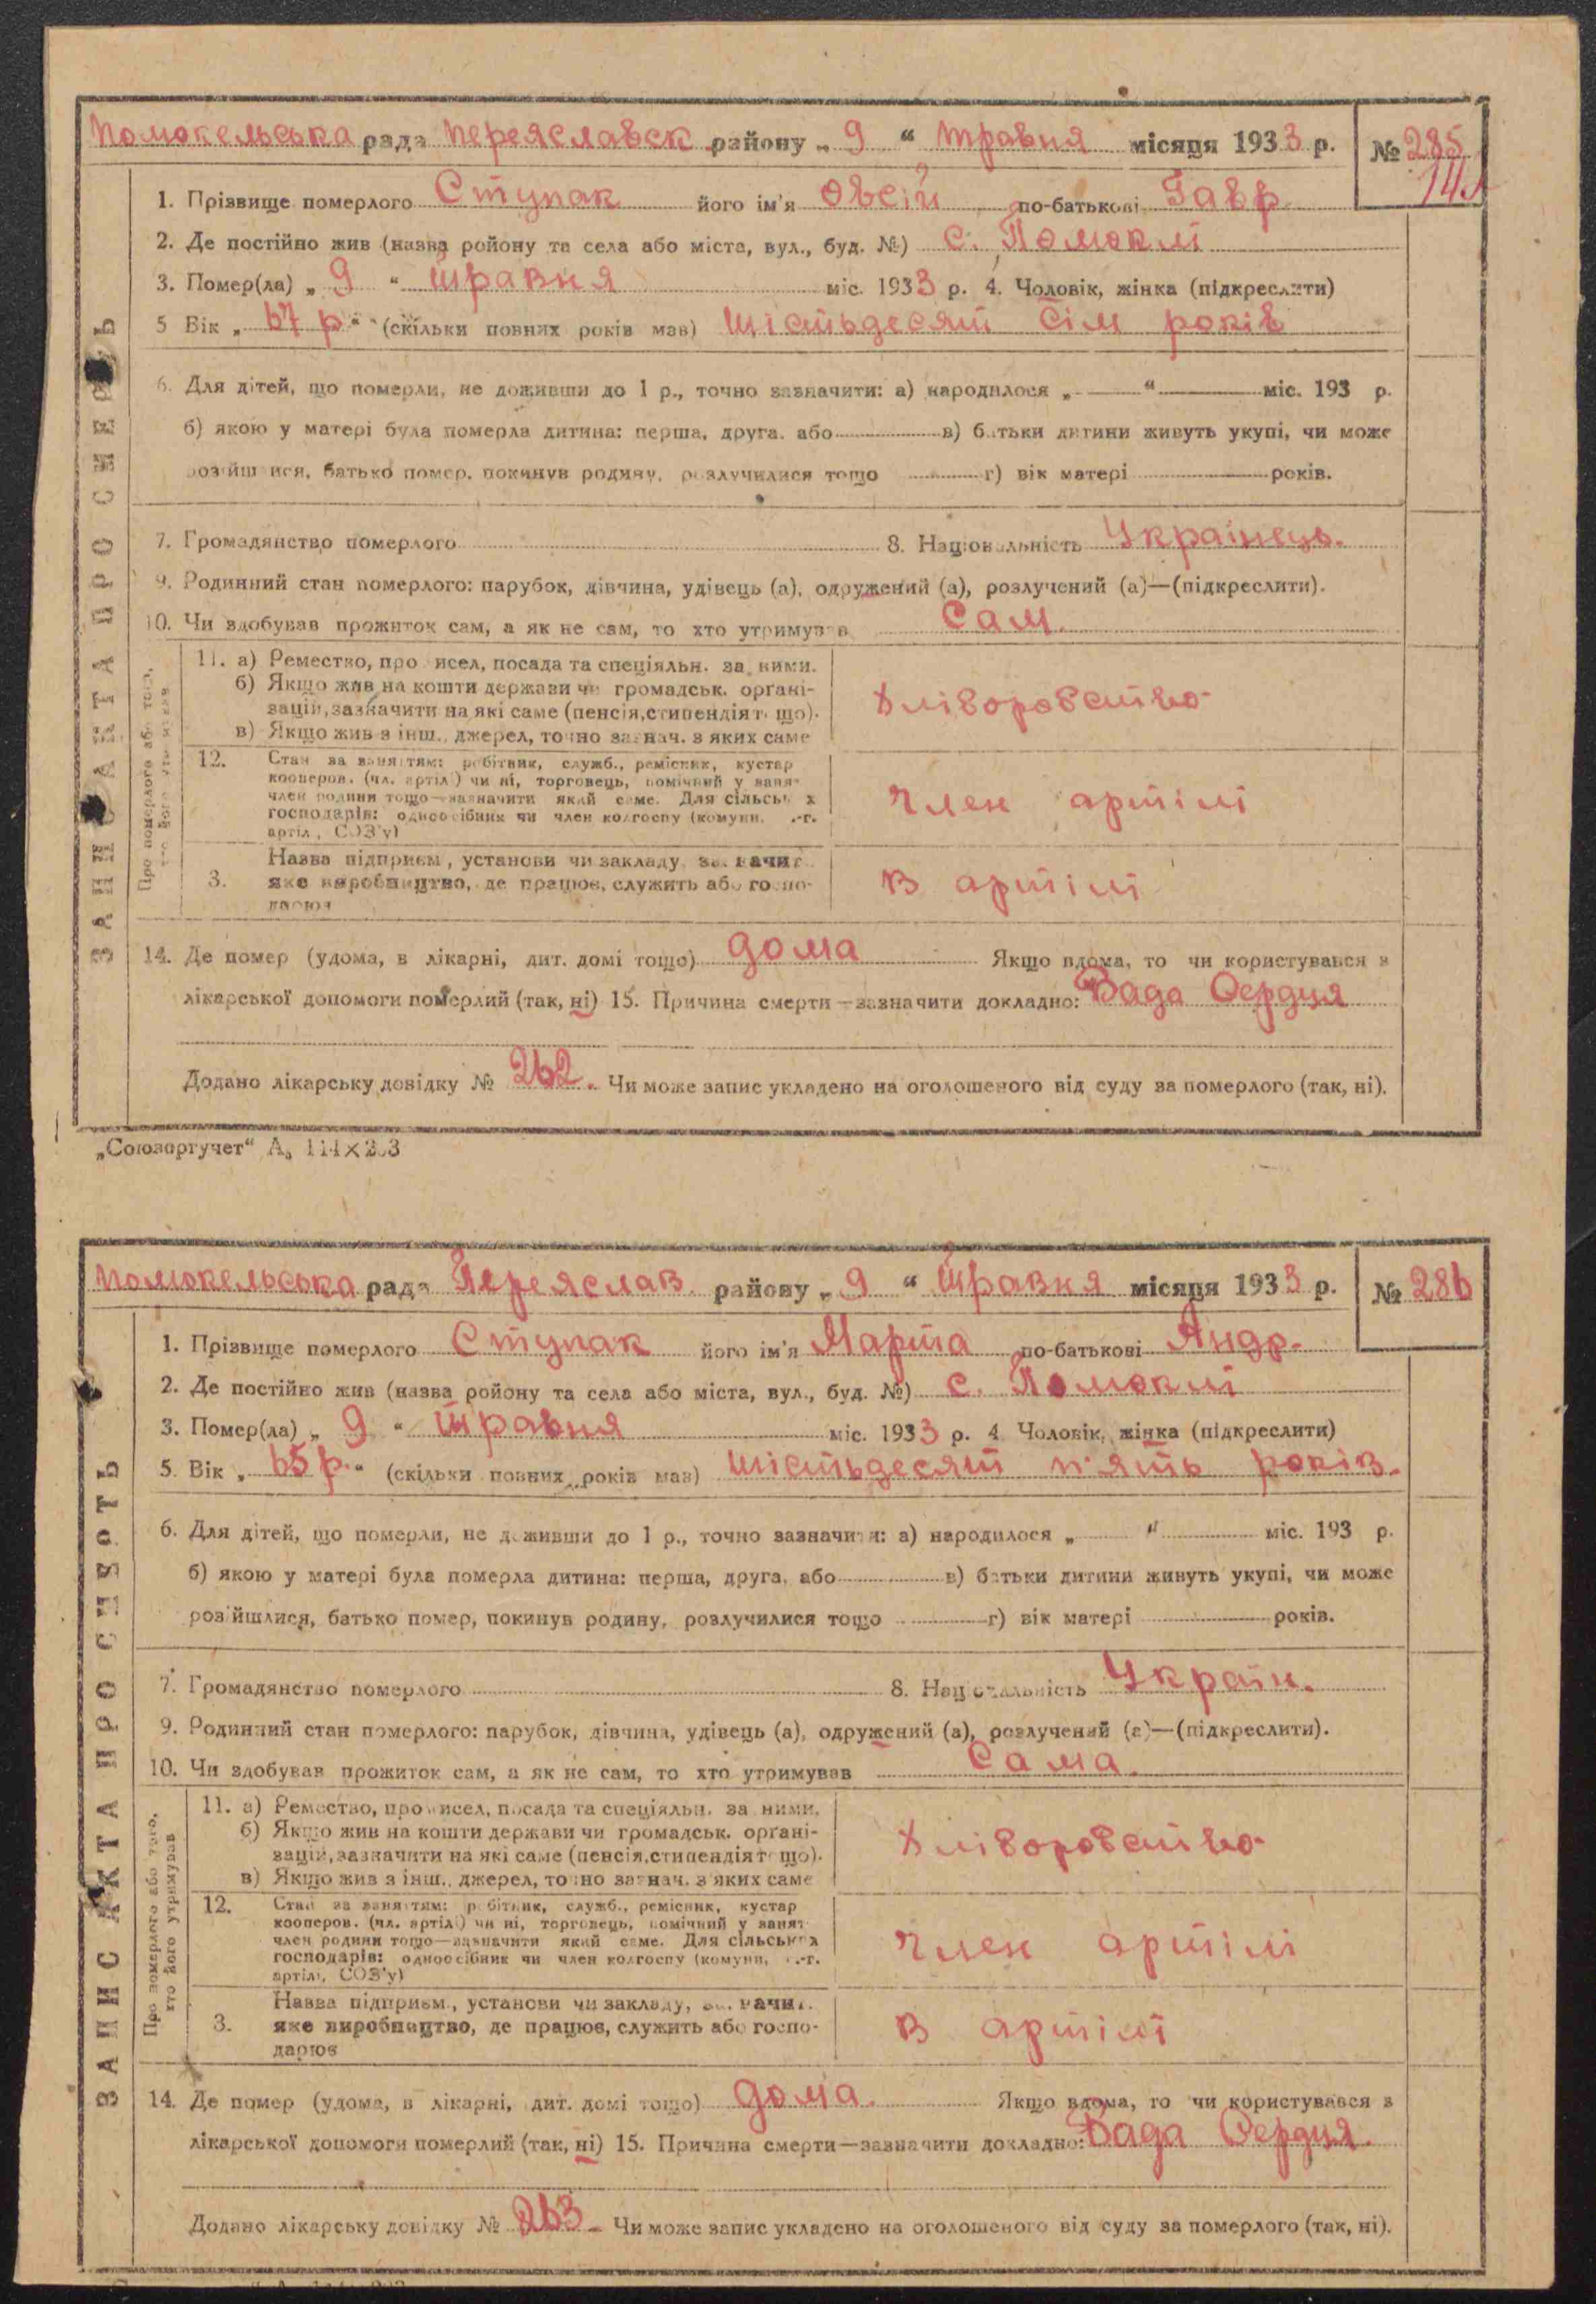 Помокельська рада Переяславск району „ 9 “ травня місяця 1933 р. № 285
1. Прізвище померлого Ступак його ім'я Овсій по-батькові Гавр
2. Де постійно жив (назва ройону та села або міста, вул., буд. №) с. Помоклі
3. Помер(ла) „ 9 “ травня міс. 1933 р. 4. Чоловік, жінка (підкреслити)
5 Вік „ 67 р “ (скільки повних років мав) шістьдесят сім років
6. Для дітей, що померли, не доживши до 1 р., точно зазначити: а) народилося „ “ міс. 193 р.
б) якою у матері була померла дитина: перша, друга, або в) батьки дитини живуть укупі, чи може
розійшлися, батько помер, покинув родину, розлучилися тощо г) вік матері років.
7. Громадянство померлого 8. Національність Українець.
9. Родинний стан померлого: парубок, дівчина, удівець (а), одружений (а), розлучений (а)—(підкреслити).
10. Чи здобував прожиток сам, а як не сам, то хто утримував Сам.
ЗАПИС АКТА ПРО СМЕРТЬ
Про померлого або того, хто його утримував
11. а) Ремество, промисел, посада та спеціяльн. за ними.
б) Якщо жив на кошти держави чи громадськ. органі-
зацій, зазначити на які саме (пенсія, стипендія тощо).
в) Якщо жив з інш., джерел, точно зазнач. з яких саме
Хліборобство
12. Стан за заняттям: робітник, служб., ремісник, кустар
кооперов. (чл. артілі) чи ні, торговець, помічний у занят
член родини тощо—зазначити який саме. Для сільських
господарів: одноосібник чи член колгоспу (комуни, с.-г.
артілі, СОЗ'у)
Член артілі
3. Назва підприєм., установи чи закладу, зазначит.
яке виробництво, де працює, служить або госпо-
дарює
В артілі
14. Де помер (удома, в лікарні, дит. домі тощо) дома Якщо вдома, то чи користувався з
лікарської допомоги померлий (так, ні) 15. Причина смерти—зазначити докладно: Вада Сердця
Додано лікарську довідку № 262. Чи може запис укладено на оголошеного від суду за померлого (так, ні).
„Союзоргучет“ А₅
Помокельська рада Переяслав району „ 9 “ травня місяця 1933 р. № 286
1. Прізвище померлого Ступак його ім'я Марта по-батькові Андр.
2. Де постійно жив (назва ройону та села або міста, вул., буд. №) с. Помоклі
3. Помер(ла) „ 9 “ травня міс. 1933 р. 4 Чоловік, жінка (підкреслити)
5. Вік „ 65 р. “ (скільки повних років мав) шістьдесят п'ять років.
6. Для дітей, що померли, не доживши до 1 р., точно зазначити: а) народилося „ “ міс. 193 р.
б) якою у матері була померла дитина: перша, друга, або в) батьки дитини живуть укупі, чи може
розійшлися, батько помер, покинув родину, розлучилися тощо г) вік матері років.
7. Громадянство померлого 8. Національність Україн.
9. Родинний стан померлого: парубок, дівчина, удівець (а), одружений (а), розлучений (а)—(підкреслити).
10. Чи здобував прожиток сам, а як не сам, то хто утримував Сама.
ЗАПИС АКТА ПРО СМЕРТЬ
Про померлого або того, хто його утримував
11. а) Ремество, промисел, посада та спеціяльн. за ними.
б) Якщо жив на кошти держави чи громадськ. органі-
зацій, зазначити на які саме (пенсія, стипендія тощо).
в) Якщо жив з інш., джерел, точно зазнач. з яких саме
Хліборобство
12. Стан за заняттям: робітник, служб., ремісник, кустар
кооперов. (чл. артілі) чи ні, торговець, помічний у занят
член родини тощо—зазначити який саме. Для сільських
господарів: одноосібник чи член колгоспу (комуни, с.-г.
артілі, СОЗ'у)
Член артілі
3. Назва підприєм., установи чи закладу, зазначит.
яке виробництво, де працює, служить або госпо-
дарює
В артілі
14. Де помер (удома, в лікарні, дит. домі тощо) дома. Якщо вдома, то чи користувався з
лікарської допомоги померлий (так, ні) 15. Причина смерти—зазначити докладно: Вада Сердця.
Додано лікарську довідку № 263. Чи може запис укладено на оголошеного від суду за померлого (так, ні).